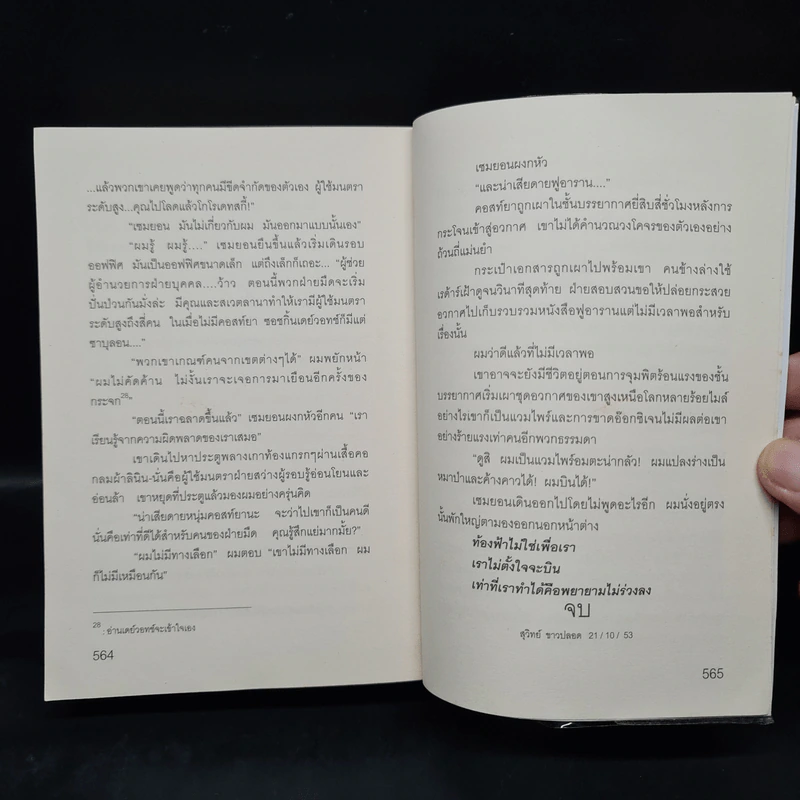 ...แล้วพวกเขาเคยพูดว่าทุกคนมีขีดจำกัดของตัวเอง ผู้ใช้มนตรา
ระดับสูง...คุณไปโลดแล้วโกโรเดทสกี้!"
"เซมยอน มันไม่เกี่ยวกับผม มันออกมาแบบนั้นเอง"
"ผมรู้ ผมรู้...." เซมยอนยืนขึ้นแล้วเริ่มเดินรอบ
ออฟฟิศ มันเป็นออฟฟิศขนาดเล็ก แต่ถึงเล็กก็เถอะ... "ผู้ช่วย
ผู้อำนวยการฝ่ายบุคคล...ว้าว ตอนนี้พวกฝ่ายมืดจะเริ่ม
ปั่นป่วนกันมั่งล่ะ มีคุณและสเวตลานาทำให้เรามีผู้ใช้มนตรา
ระดับสูงถึงสี่คน ในเมื่อไม่มีคอสท์ยา ซอซกิ้นเดย์วอทช์ก็มีแต่
ซาบูลอน...."
"พวกเขาเกณฑ์คนจากเขตต่างๆได้" ผมพยักหน้า
"ผมไม่คัดค้าน ไม่งั้นเราจะเจอการมาเยือนอีกครั้งของ
กระจก28"
"ตอนนี้เราฉลาดขึ้นแล้ว" เซมยอนผงกหัวอีกคน "เรา
เรียนรู้จากความผิดพลาดของเราเสมอ"
เขาเดินไปหาประตูพลางเกาท้องแกรกๆผ่านเสื้อคอ
กลมผ้าลินิน-นั่นคือผู้ใช้มนตราฝ่ายสว่างผู้รอบรู้อ่อนโยนและ
อ่อนล้า เขาหยุดที่ประตูแล้วมองผมอย่างครุ่นคิด
"น่าเสียดายหนุ่มคอสท์ยานะ จะว่าไปเขาก็เป็นคนดี
นั่นคือเท่าที่ดีได้สำหรับคนของฝ่ายมืด คุณรู้สึกแย่มากมั้ย?"
"ผมไม่มีทางเลือก" ผมตอบ "เขาไม่มีทางเลือก ผม
ก็ไม่มีเหมือนกัน"
28 : อ่านเดย์วอทช์จะเข้าใจเอง
564
เซมยอนผงกหัว
"และน่าเสียดายฟูอาราน...."
คอสท์ยาถูกเผาในชั้นบรรยากาศยี่สิบสี่ชั่วโมงหลังการ
กระโจนเข้าสู่อวกาศ เขาไม่ได้คำนวณวงโคจรของตัวเองอย่าง
ถ้วนถี่แม่นยำ
กระเป๋าเอกสารถูกเผาไปพร้อมเขา คนข้างล่างใช้
เรด้าร์เฝ้าดูจนวินาทีสุดท้าย ฝ่ายสอบสวนขอให้ปล่อยกระสวย
อวกาศไปเก็บรวบรวมหนังสือฟูอารานแต่ไม่มีเวลาพอสำหรับ
เรื่องนั้น
ผมว่าดีแล้วที่ไม่มีเวลาพอ
เขาอาจจะยังมีชีวิตอยู่ตอนการจุมพิตร้อนแรงของชั้น
บรรยากาศเริ่มเผาชุดอวกาศของเขาสูงเหนือโลกหลายร้อยไมล์
อย่างไรเขาก็เป็นแวมไพร์และการขาดอ๊อกซิเจนไม่มีผลต่อเขา
อย่างร้ายแรงเท่าคนอีกพวกธรรมดา
"ดูสิ ผมเป็นแวมไพร์อมตะน่ากลัว! ผมแปลงร่างเป็น
หมาป่าและค้างคาวได้! ผมบินได้!"
เซมยอนเดินออกไปโดยไม่พูดอะไรอีก ผมนั่งอยู่ตรง
นั้นพักใหญ่ตามองออกนอกหน้าต่าง
ท้องฟ้าไม่ใช่เพื่อเรา
เราไม่ตั้งใจจะบิน
เท่าที่เราทำได้คือพยายามไม่ร่วงลง
จบ
สุวิทย์ ขาวปลอด 21 / 10 / 53
565